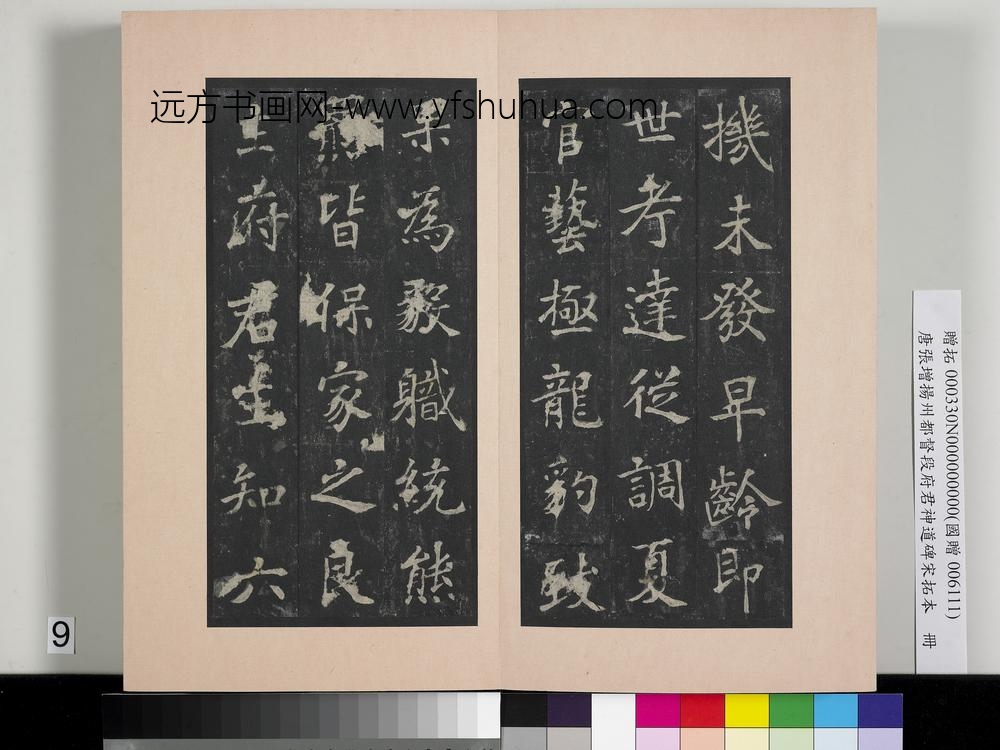 機未發早齡即
世考達從調夏
官藝極龍豹致
朱為毅職統熊
皆保家之良
府君生知六
远方书画网-www.yfshuhua.com
贈拓 000330N000000000(國贈 006111)
唐張增揚州都督段府君神道碑宋拓本 冊
9